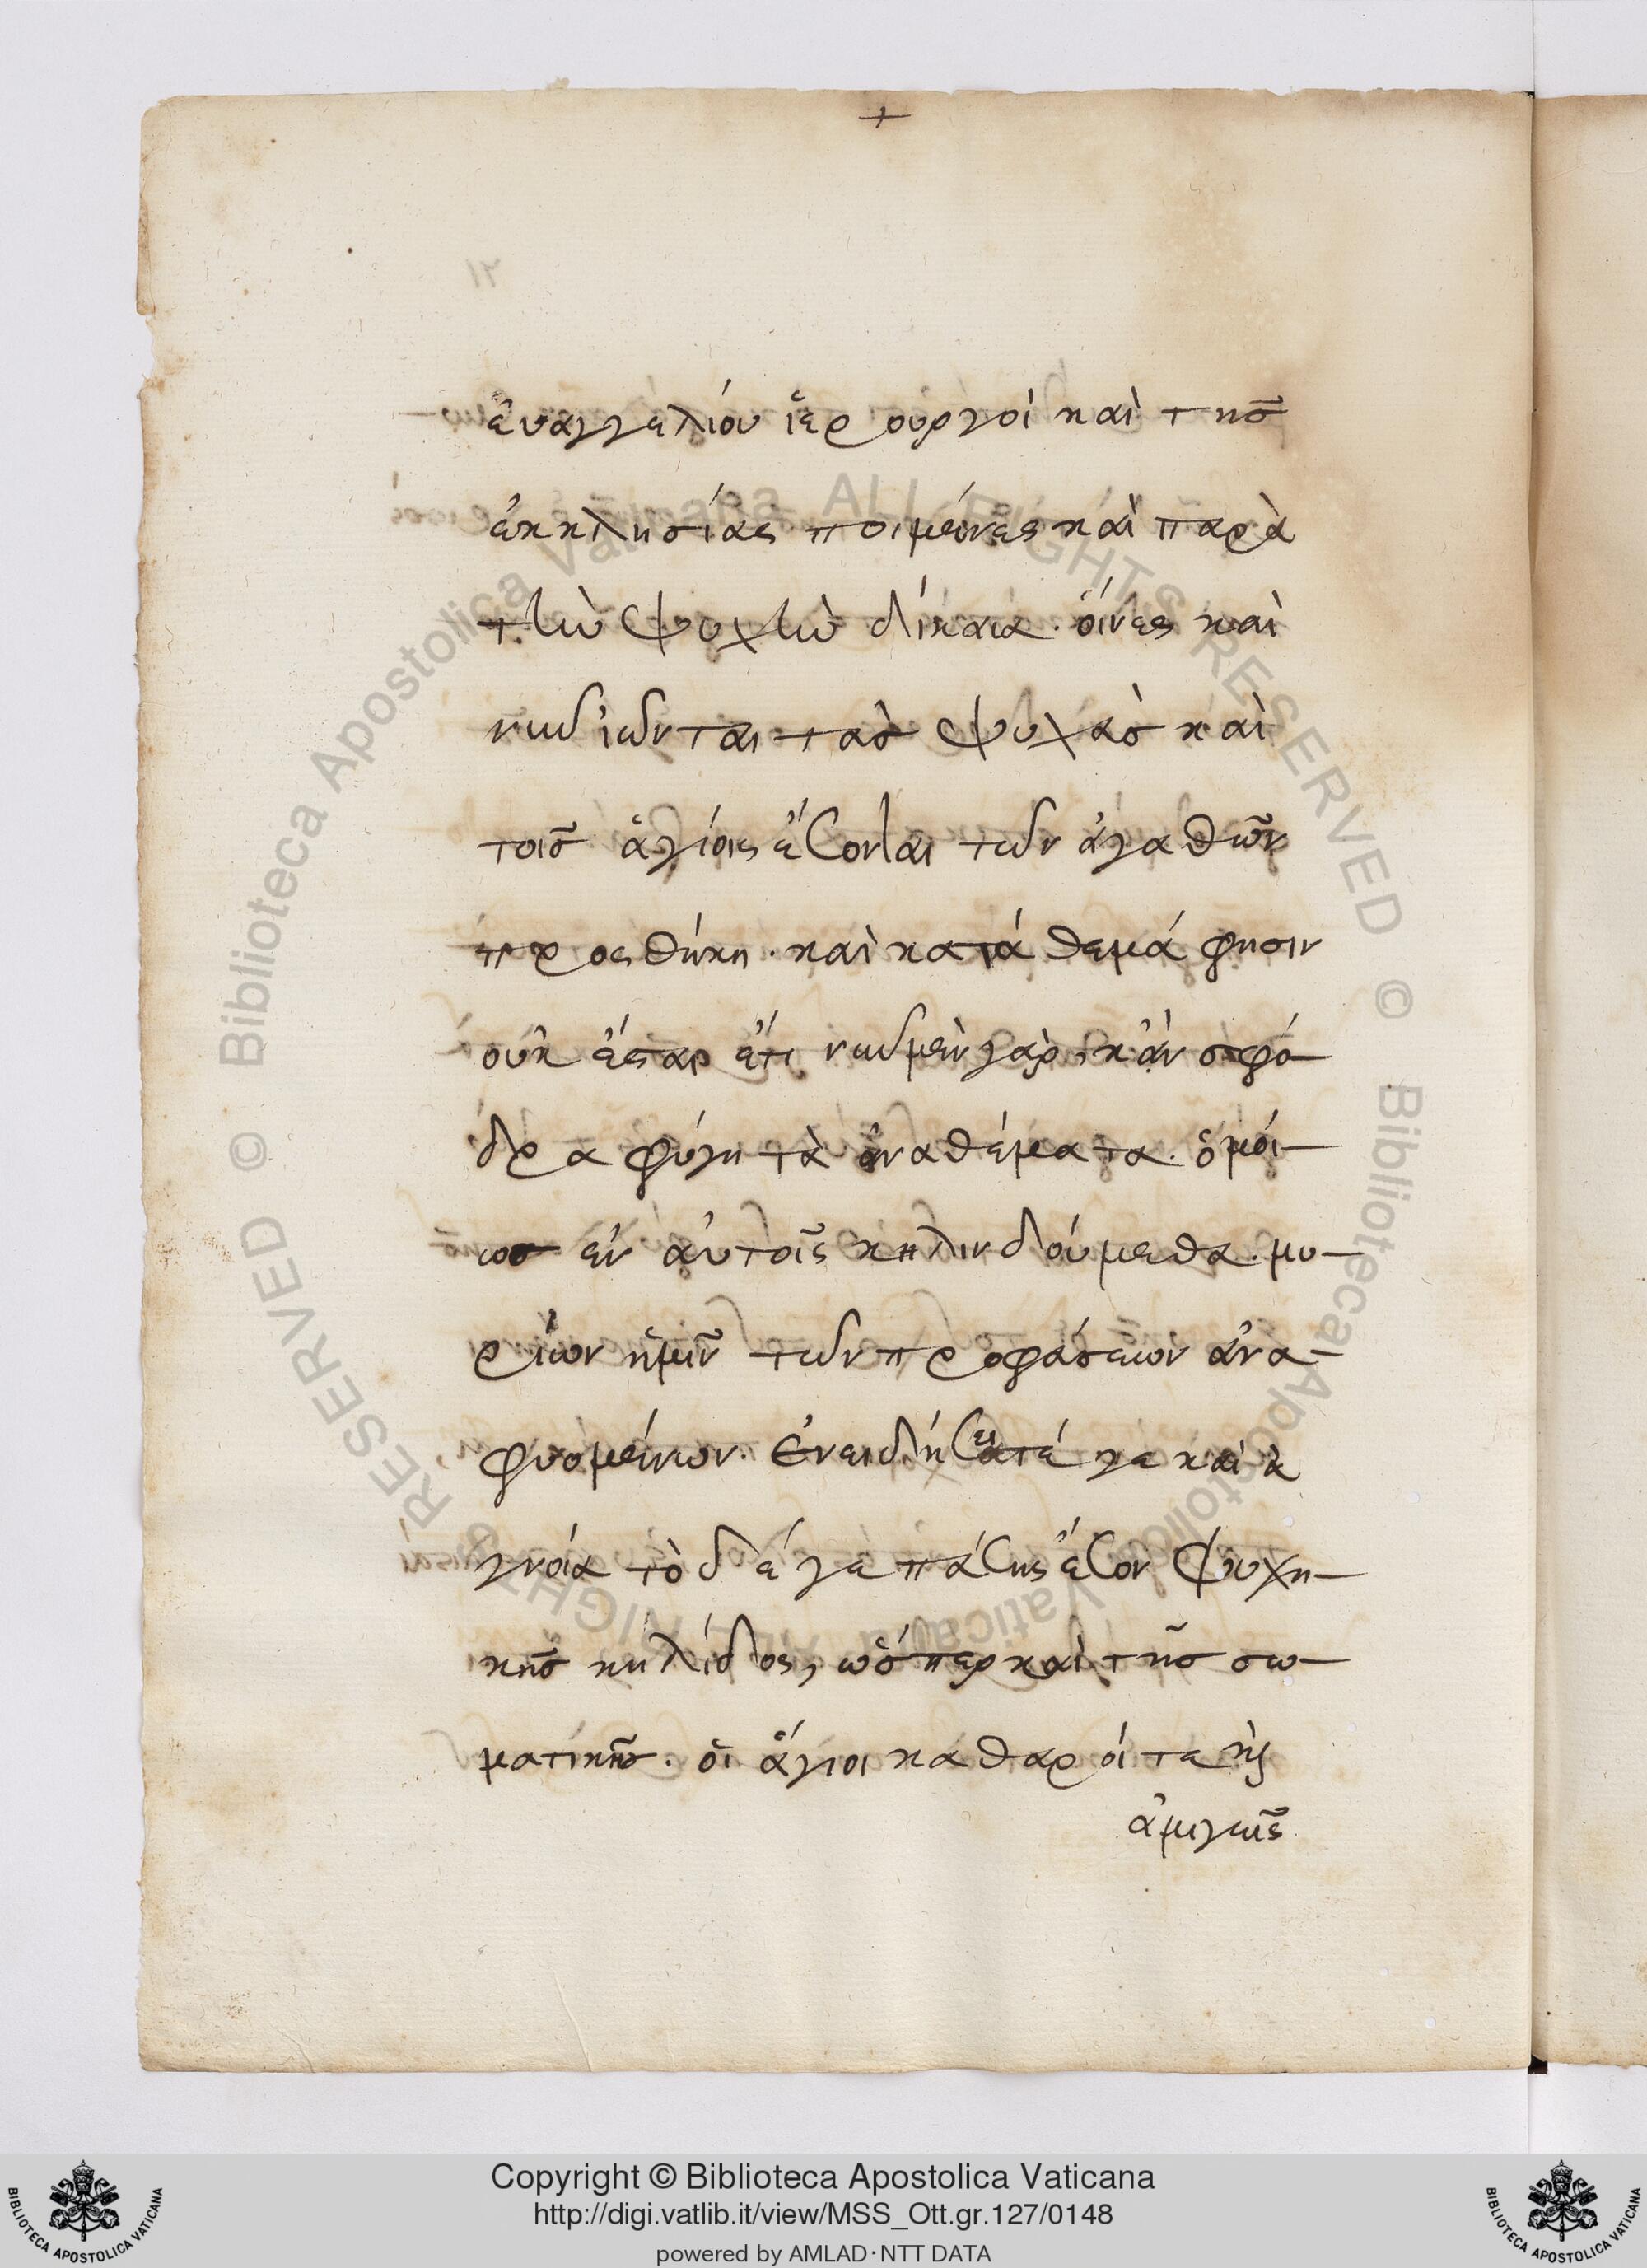 +
ἐυαγγελίου ἱερουργοὶ καὶ τῆσ
ἐκκλησίας ποιμένες καὶ παρὰ
τὴν ψυχὴν δίκαια. ὁίνες καὶ
νῦν ἰῶνται τὰσ ψυχὰσ καὶ
τοῖσ ἁγίοις ἔσονται τῶν ἀγαθῶν
προςθήκη. καὶ κατά θεμά φησιν
οὐκ ἔσται ἔτι νῦν μὲν γὰρ, κἂν σφό-
δρα φύγη τὰ ἀναθέματα. ὁμοί-
ωσ ἐν ἀυτοῖς κηλινδούμεθα. μυ-
ρίων ἡμῖν τῶν προφάσεων ἀνα-
φυομένων. ἐνειδήσει ατέ γε καὶ ἀ
γνοία τὸ δέ γε πάσης ἔσον ψυχη-
κῆσ κηλίδος, ὥσπερ καὶ τῆσ σω-
ματικῆσ. οἱ ἅγιοι καθαροί τε κς
ἀμιγεῖς
Copyright © Biblioteca Apostolica Vaticana
http://digi.vatlib.it/view/MSS_Ott.gr.127/0148
powered by AMLAD·NTT DATA
BIBLIOTECA APOSTOLICA VATICANA
BIBLIOTECA APOSTOLICA VATICANA
© Biblioteca Apostolica Vaticana ALL RIGHTS RESERVED © Biblioteca Apostolica Vaticana ALL RIGHTS RESERVED